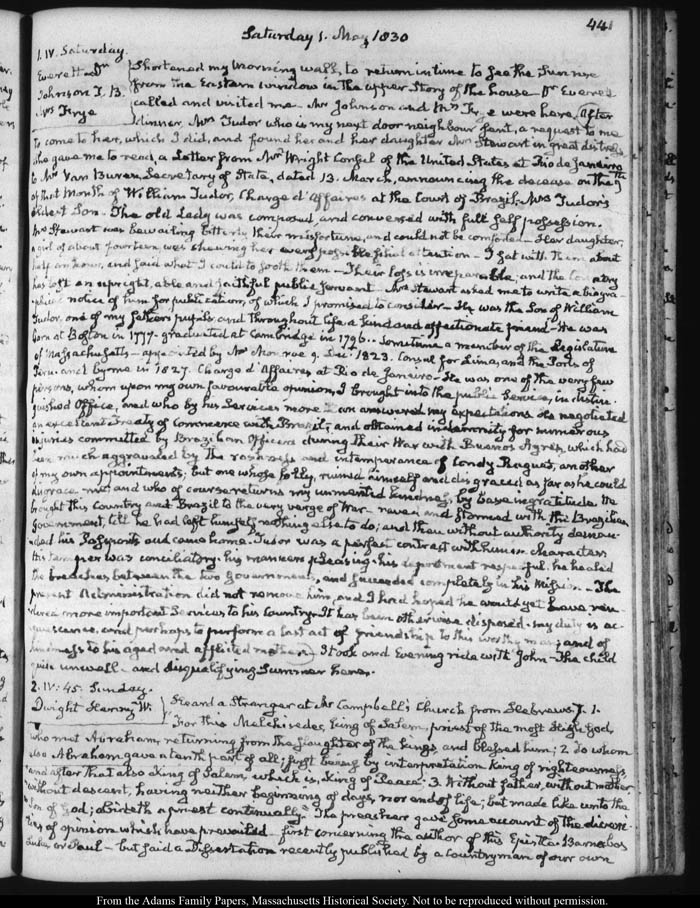 Saturday 1. May 1830
441
1. IV. Saturday.
Everett Dr
Johnson J. B.
Mrs Frye
Shortened my morning walk, to return in time to see the Sun rise
from the Eastern window in the upper Story of the house. Dr Everett
called and visited me. Mr Johnson and Mrs Frye were here. After
dinner, Mrs Tudor who is my next door neighbour sent, a request to me
to come to her, which I did, and found her and her daughter Mrs Stewart in great distress
who gave me to read, a Letter from Mr Wright Consul of the United States at Rio de Janeiro
to Mr Van Buren, Secretary of State, dated 13. March, announcing the decease on the 9th
of that Month of William Tudor, Chargé d'Affaires at the Court of Brazil, Mrs Tudor's
oldest Son. The old Lady was composed, and conversed with full self possession.
Mrs Stewart was bewailing bitterly their misfortune, and could not be comforted – Her daughter,
a girl of about fourteen was shewing her every possible filial attention – I sat with them about
half an hour, and said what I could to sooth them – Their loss is irreparable, and the Country
has lost an upright, able and faithful public servant – Mrs Stewart asked me to write a biogra-
phical notice of him for publication, of which I promised to consider – He was the Son of William
Tudor, one of my father's pupils and throughout life a kind and affectionate friend – He was
born at Boston in 1779 – graduated at Cambridge in 1796. – Sometime a member of the Legislature
of Massachusetts – appointed by Mr Monroe 9. Dec: 1823. Consul for Lima, and the Ports of
Peru. and by me in 1827. Chargé d'Affaires at Rio de Janeiro – He was one of the very few
persons, whom upon my own favourable opinion, I brought into the public Service, in distin-
guished Office, and who by his Services more than answered my expectations. He negotiated
an excellent Treaty of Commerce with Brazil, and obtained indemnity for numerous
injuries committed by Brazilian Officers during their War with Buenos Ayres, which had
been much aggravated by the rashness and intemperance of Condy Raguet, another
of my own appointments; but one whose folly, ruined himself and disgraced as far as he could
disgrace me, and who of course returns my unmerited kindness, by base ingratitude. He
brought this Country and Brazil to the very verge of War – raved and stormed with the Brazilian
Government, till he had left himself nothing else to do; and then without authority deman-
ded his Passports and came home. Tudor was a perfect contrast with him in character.
His temper was conciliatory. his manners pleasing. his deportment respectful. he healed
the breaches between the two Governments, and succeeded completely in his Mission. – The
present Administration did not remove him, and I had hoped he would yet have ren-
dered more important Services to his Country. It has been otherwise disposed. my duty is ac-
quiescence. and perhaps to perform a last act of friendship to this worthy man; and of
kindness to his aged and afflicted mother. – I took an Evening ride with John – The child
quite unwell – and disqualifying Summer heat.
2. IV: 45. Sunday.
Dwight W.
Heard a Stranger at Mr Campbell's Church from Hebrews 7. 1.
"For this Melchisedec, king of Salem, priest of the most high God,
who met Abraham, returning from the slaughter of the kings and blessed him; 2 To whom
also Abraham gave a tenth part of all; first being by interpretation King of righteousness,
and after that also King of Salem, which is, King of Peace; 3. Without father, without mother
without descent, having neither beginning of days, nor end of life; but made like unto the
Son of God; abideth a priest continually." The preacher gave some account of the diversi-
ties of opinion which have prevailed – first concerning the author of this Epistle. Barnabas
Luke, or Paul – but said a Dissertation recently published by a Countryman of our own
From the Adams Family Papers, Massachusetts Historical Society. Not to be reproduced without permission.